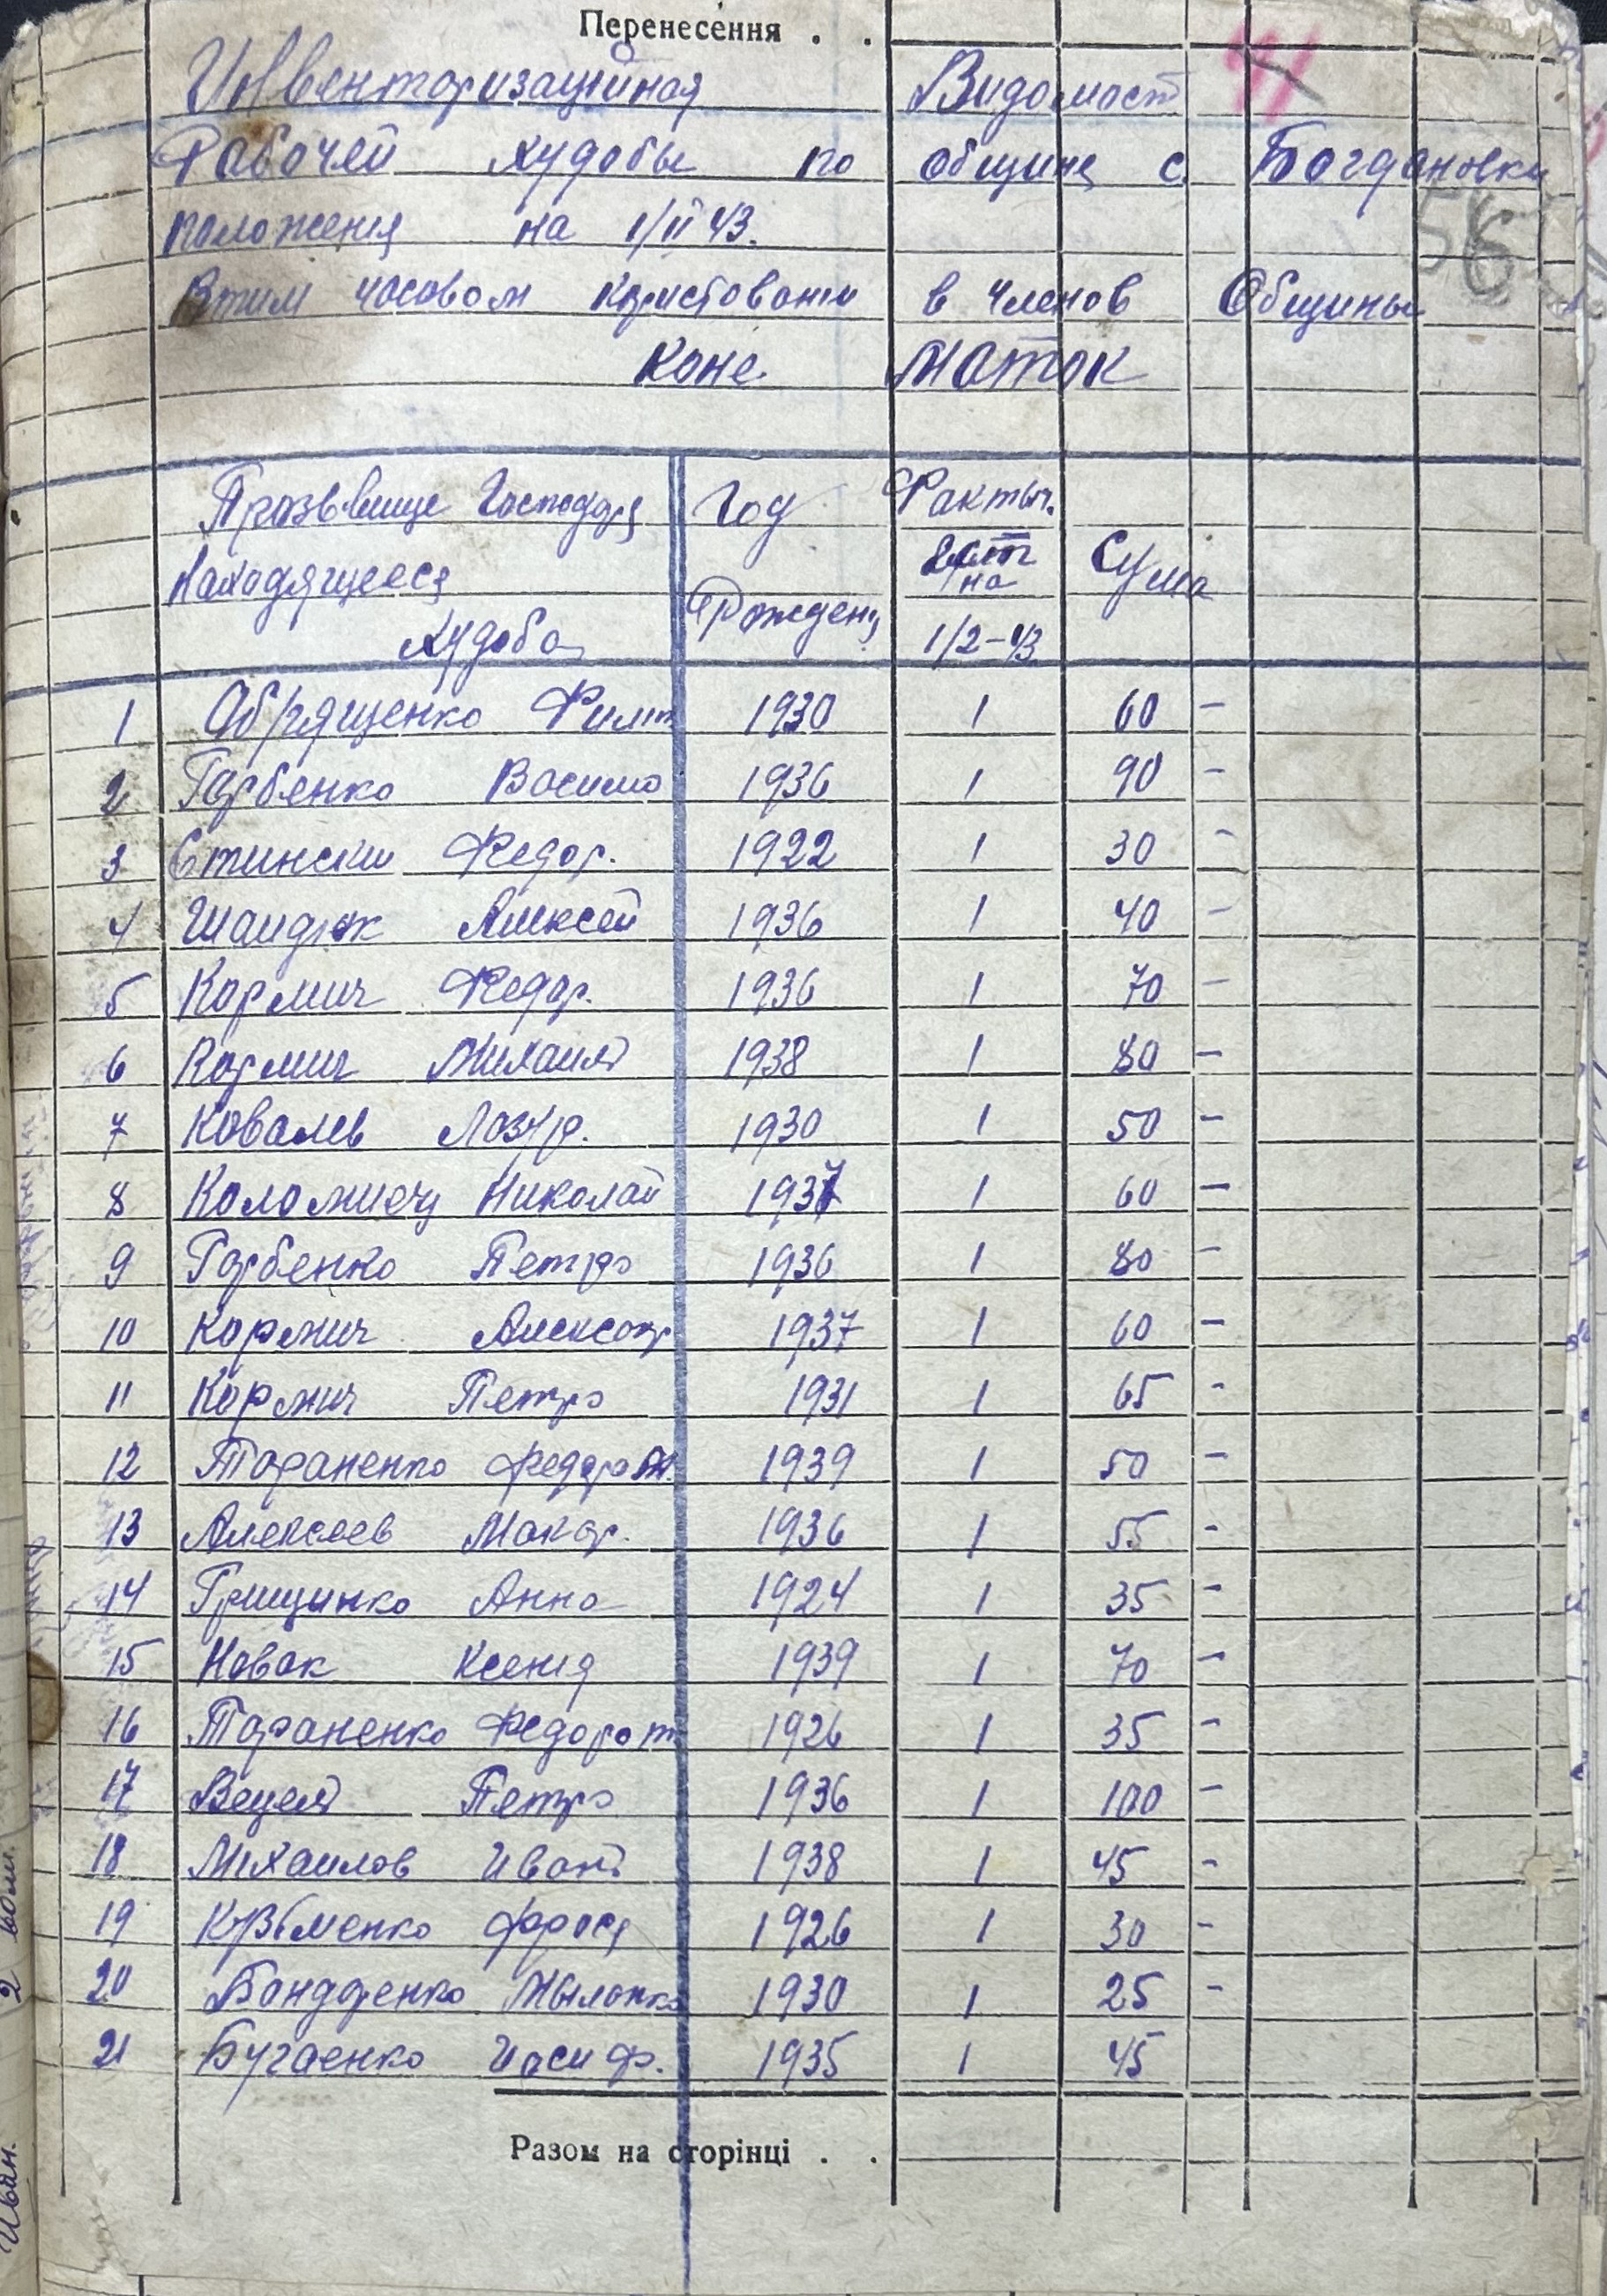 Перенесення . .
Инвенторизацийная Видомост 41
Рабочей худобы по общине с. Богдановки
56
положения на 1/II 43.
Втим часовом користовании в членов Общины
Коне Маток
Прозвище Господаря Год Фактыч.
Находящееся на Сума
Худоба Рождения 1/2-43
1 Обрященко Филип 1930 1 60 -
2 Горбенко Василь 1936 1 90 -
3 Стински Федор. 1922 1 30 -
4 Шандюк Алексей 1936 1 40 -
5 Кармич Федор. 1936 1 70 -
6 Кармич Михаил 1938 1 80 -
7 Ковалев Лазар. 1930 1 50 -
8 Коломиец Николай 1937 1 60 -
9 Горбенко Петро 1936 1 80 -
10 Кормич Александр 1937 1 60 -
11 Кормич Петро 1931 1 65 -
12 Тараненко Федот 1939 1 50 -
13 Алексеев Макар. 1936 1 55 -
14 Грищинко Анна 1924 1 35 -
15 Новак Ксения 1939 1 70 -
16 Тараненко Федорот 1926 1 35 -
17 Вецел Петро 1936 1 100 -
18 Михаилов Иван 1938 1 45 -
19 Кузьменко Фрося 1926 1 30 -
20 Бондаренко 1930 1 25 -
21 Бугаенко Иосиф. 1935 1 45
Разом на сторінці . .